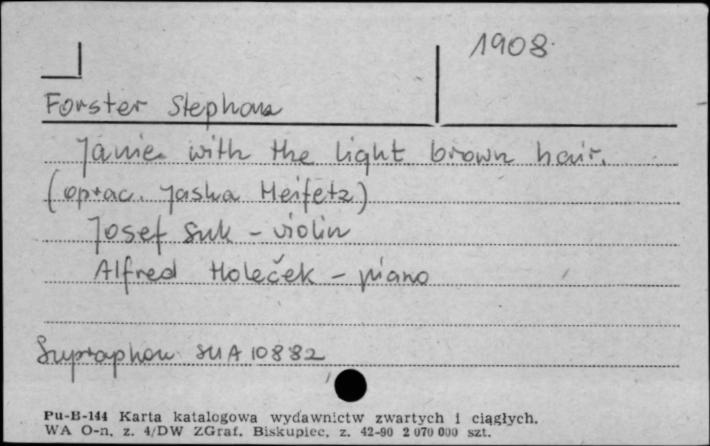 1908.
Forster Stephana
Janie with the light brown hair.
(oprac. Jasha Heifetz)
Josef Suk - violin
Alfred Holeček - piano
Supraphon SUA 10882
Pu-B-144 Karta katalogowa wydawnictw zwartych i ciągłych.
WA O-n, z. 4/DW ZGraf. Biskupiec, z. 42-90 2 070 000 szt.